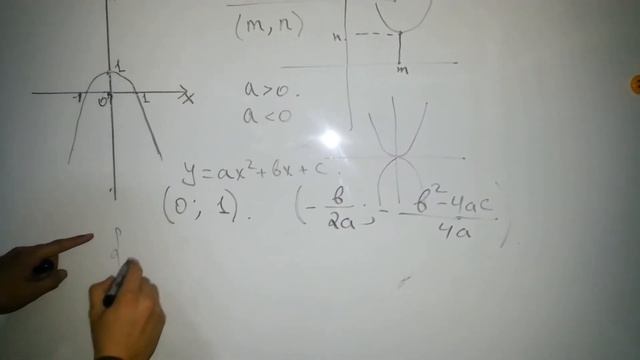 (m, n)
n
m
1
-1 0 1 x
a>0.
a<0
y=ax²+bx+c.
(0; 1). (-b/2a; -b²-4ac/4a)